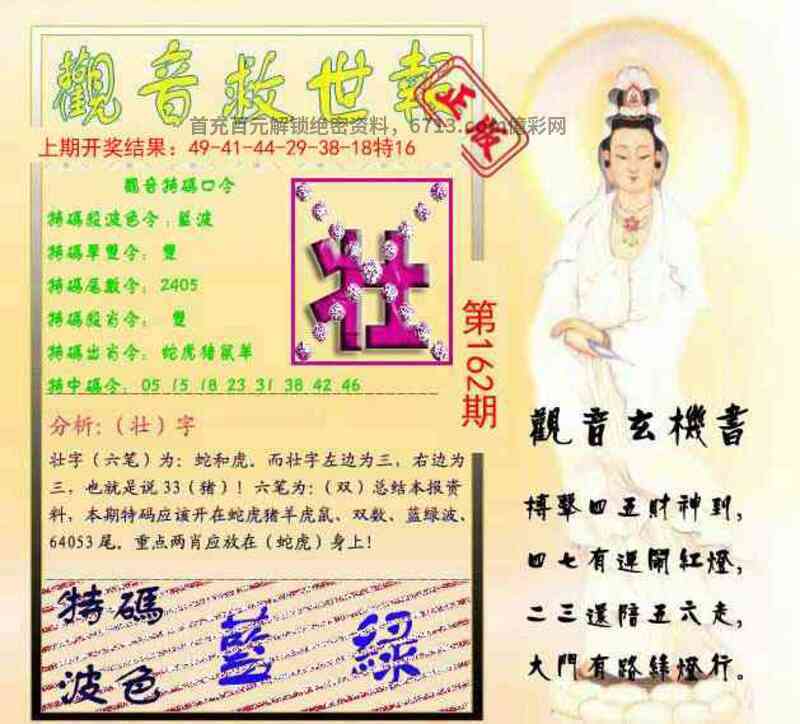 觀音救世報
正本
首充百元解锁绝密资料，6713.com信彩网
上期开奖结果：49-41-44-29-38-18特16
觀音特碼口令
特碼殺波色令：藍波
特碼單雙令： 雙
特碼尾數令：2405
特碼殺肖令： 雙
特碼出肖令： 蛇虎猪鼠羊
特中碼令：05 15 18 23 31 38 42 46
壮
第162期
分析：（壮）字
壮字（六笔）为：蛇和虎。而壮字左边为三，右边为
三，也就是说33（猪）！六笔为：（双）总结本报资
料，本期特码应该开在蛇虎猪羊虎鼠、双数、蓝绿波、
64053尾。重点两肖应放在（蛇虎）身上！
特碼
波色
藍 綠
觀音玄機書
搏擊四五財神到，
四七有運鬧紅燈，
二三還陪五六走，
大門有路綠燈行。